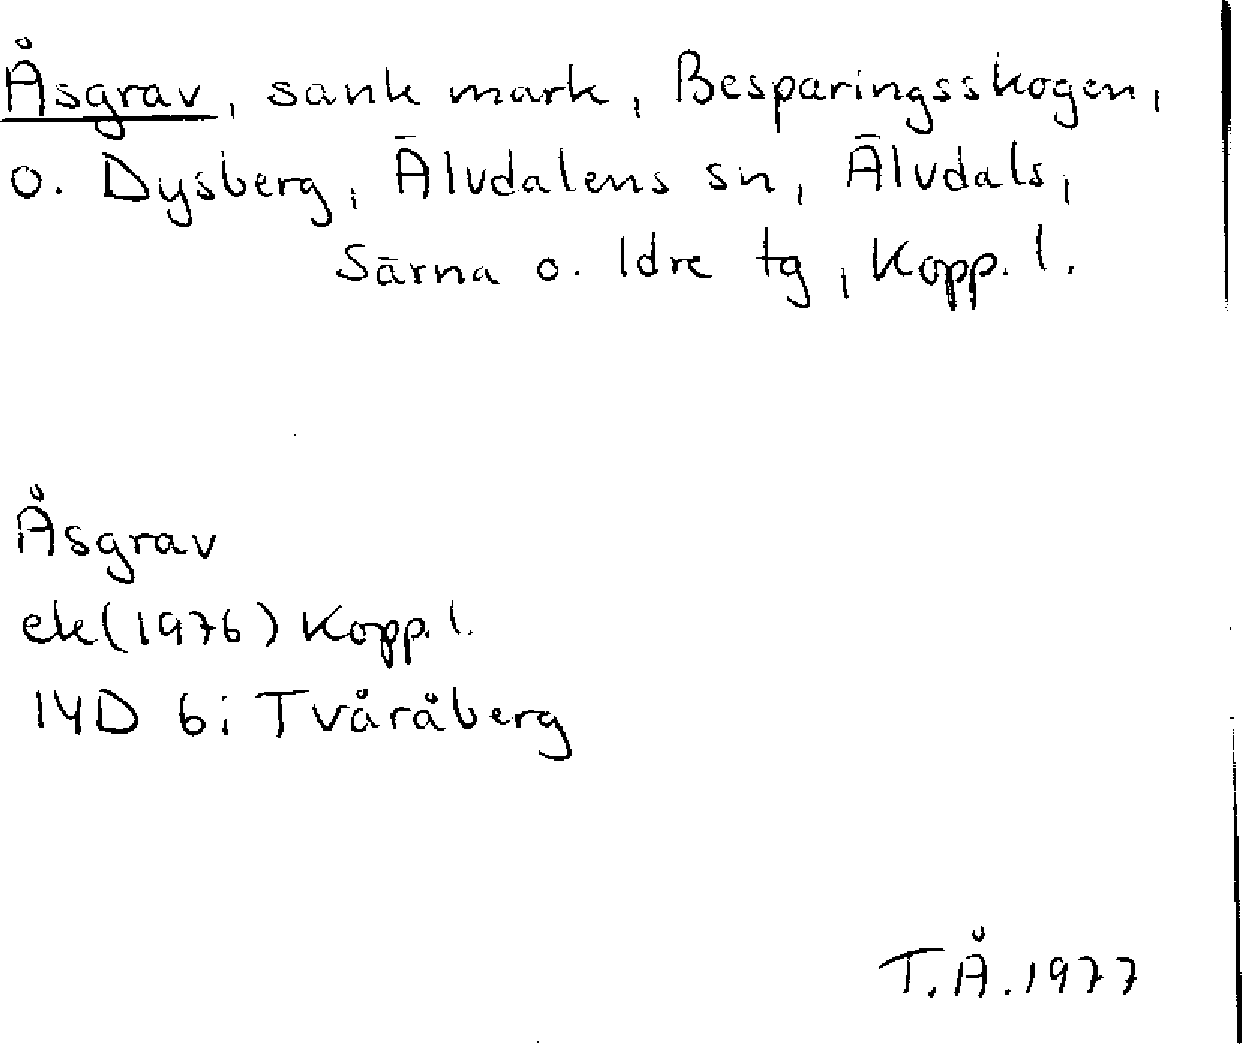 Åsgrav, sank mark, Besparingsskogen,
o. Dysberg, Älvdalens sn, Älvdals,
Särna o. Idre tg, Kopp. l.
Åsgrav
ek (1976) Kopp. l.
14D 6i Tvåråberg
T.Å. 1977